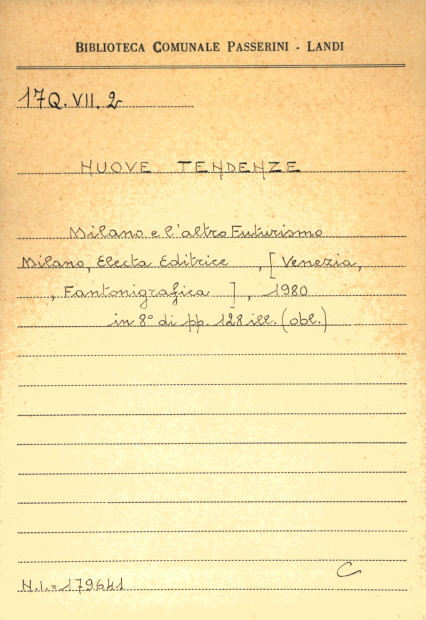 BIBLIOTECA COMUNALE PASSERINI - LANDI
17Q. VII. 2
NUOVE TENDENZE
Milano e l'altro Futurismo
Milano, Electa Editrice , [ Venezia,
, Fantonigrafica ] , 1980
in 8° di pp. 128 ill. (obl.)
C
N.I. = 179641